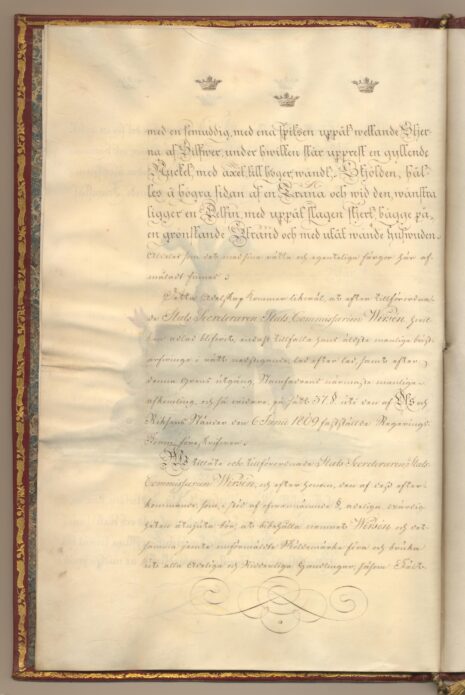 med en femuddig, med ena spiksen uppåt wettande Stjer-
na af Silfwer, under hwilken står upprest en gyllende
Nyckel, med axet till höger wändt. Skölden, hål-
les å högra sidan af en Trana och wid den wänstra
ligger en Delfin med uppåt slagen stjert, bägge på
en grönskande Strand och med utåt wände hufwuden.
Alldeles som det med sina rätta och egenteliga färger här af-
måladt finnes.
Detta Adelskap kommer likwäl, at efter tillförordna-
de Stats Secreteraren Stats Commissarien Wersén
adlad blifwit, endast tillfalla hans äldste manliga bröst-
arfwinge i rätt nedstigande led efter led, samt efter
denna Grens utgång, Stamfadrens närmaste manliga
afkomling, och så widare, på sätt 37 § uti den af Oss och
Rikhsens Ständer den 6 Junii 1809 fastställde Regerings-
Form föreskrifwer.
Wi tillåte ock tillförordnade Stats Secreteraren Stats
Commissarien Wersén, och efter honom, den af dess efter-
kommande som, i stöd af ofwannämnde §, adeliga wärdig-
heten åtnjuta bör, at bibehålla namnet Wersén och det-
samma jemte omförmälte Sköldemärke föra och bruka
uti alla Adeliga och Ridderliga Handlingar, såsom